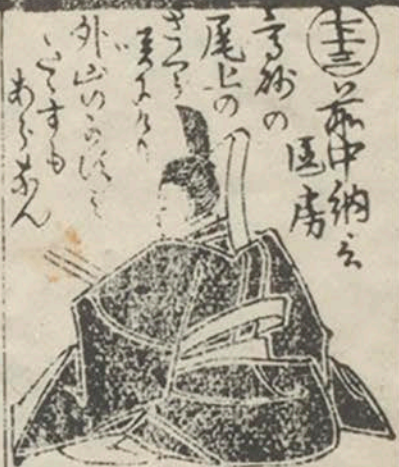 七十三
前中納言
匡房
高砂の
尾上の
さくら
咲にけり
外山のかすミ
たゝずも
あらなん